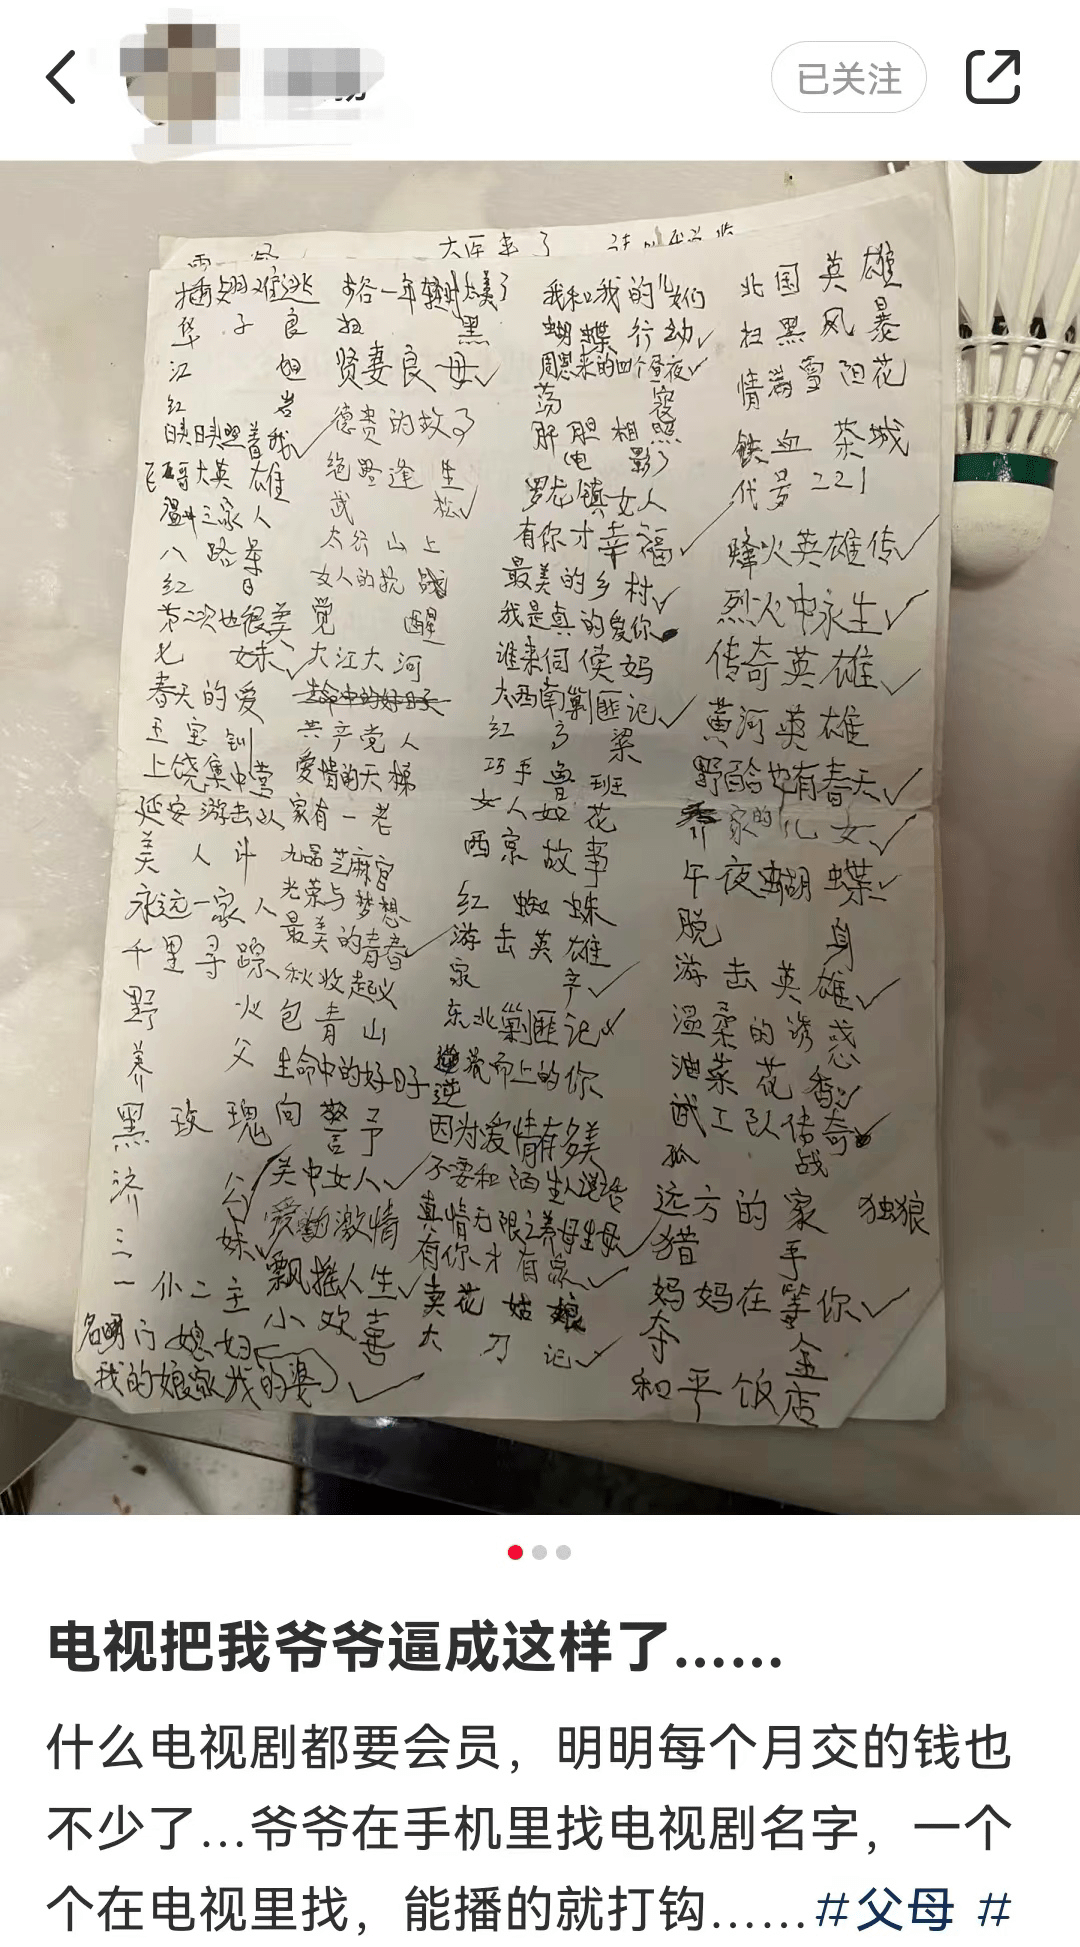 已关注
大医来了
插翅难逃 步谷一年轻时太美了 我和我的儿女们 北国英雄
华子良 扫黑 蝴蝶行动✓ 扫黑风暴
江姐 贤妻良母✓ 周恩来的四个昼夜✓ 情满雪阳花
红岩 德贵的故事 荡寇 铁血茶城
日头日头照着我✓ 绝路逢生 肝胆相照 代号221
飞哥大英雄 武松✓ 电影了 烽火英雄传✓
温州三家人 太行山上 罗龙镇女人 烈火中永生✓
八路军 女人的抗战 有你才幸福✓ 传奇英雄✓
红日 觉醒 最美的乡村✓ 黄河英雄
第二次也很美 大江大河 我是真的爱你 野百合也有春天✓
七妹✓ 生命中的好日子 谁来伺候妈 乔家的儿女✓
春天的爱 共产党人 大西南剿匪记✓ 午夜蝴蝶✓
王宝钏 爱情的天梯 红高粱 脱身
上饶集中营 家有一老 巧手鲁班 游击英雄✓
延安游击队 九品芝麻官 女人如花 温柔的诱惑
美人斗 光荣与梦想 西京故事 油菜花香
永远一家人 最美的青春✓ 红蜘蛛 武工队传奇
千里寻踪 秋收起义 游击英雄 孤战
野火 包青山 家产✓ 远方的家 独狼
养父 生命中的好日子 东北剿匪记✓ 猎手
黑玫瑰 向警予 逆流而上的你 妈妈在等你✓
济公✓ 关中女人✓ 因为爱情有多美 夺金
三妹✓ 爱的激情 不要和陌生人说话 和平饭店
一仆二主 飘摇人生✓ 真情无限之养母生母✓
名门媳妇 小欢喜 有你才有家✓
我的娘家我的婆✓ 卖花姑娘
大刀记✓
电视把我爷爷逼成这样了......
什么电视剧都要会员，明明每个月交的钱也
不少了...爷爷在手机里找电视剧名字，一个
个在电视里找，能播的就打钩......#父母 #